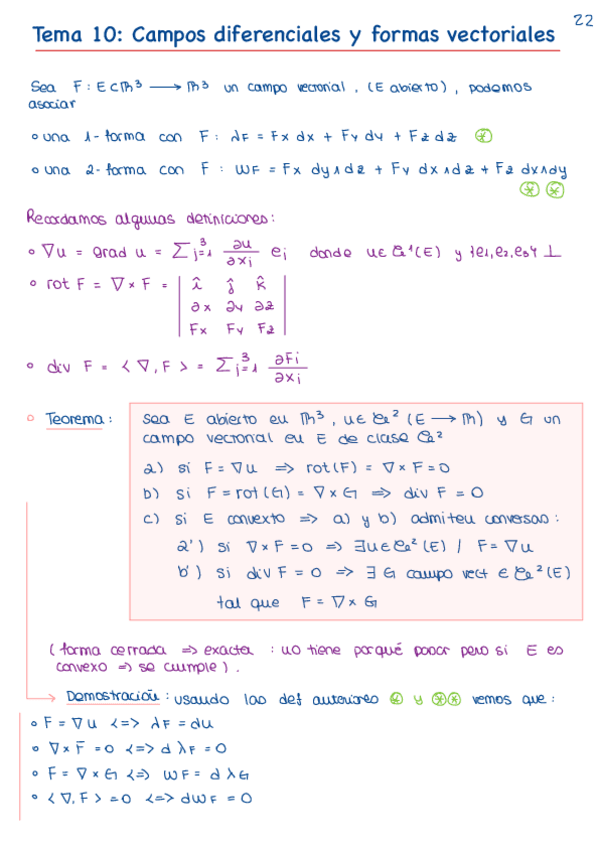 22
Tema 10: Campos diferenciales y formas vectoriales
Sea F: E⊂ℝ³ → ℝ³ un campo vectorial, (E abierto), podemos
asociar
o una 1-forma con F: λF = Fx dx + Fy dy + Fz dz ⊛
o una 2-forma con F: ωF = Fx dy∧dz + Fy dx∧dz + Fz dx∧dy
⊛ ⊛
Recordamos algunas definiciones:
o ∇u = grad u = Σ³ⱼ₌₁ ∂u/∂xj ej donde u∈𝒞¹(E) y {e1,e2,e3} ⊥
o rot F = ∇×F = | î ĵ k̂
∂x ∂y ∂z
Fx Fy Fz |
o div F = <∇,F> = Σ³ⱼ₌₁ ∂Fi/∂xi
o Teorema: Sea E abierto en ℝ³, u∈𝒞²(E→ℝ) y G un
campo vectorial en E de clase 𝒞²
a) si F=∇u => rot(F) = ∇×F=0
b) si F=rot(G)=∇×G => div F = 0
c) si E convexto => a) y b) admiten conversas:
a') si ∇×F=0 => ∃u∈𝒞²(E) / F=∇u
b') si div F = 0 => ∃ G campo vect ∈ 𝒞²(E)
tal que F=∇×G
(forma cerrada => exacta: no tiene porqué pasar pero si E es
convexo => se cumple).
Demostración: usando las def anteriores ⊛ y ⊛⊛ vemos que:
o F=∇u <=> λF=du
o ∇×F̄=0 <=> dλF=0
o F=∇×G <=> ωF=dλG
o <∇,F>=0 <=> dωF=0